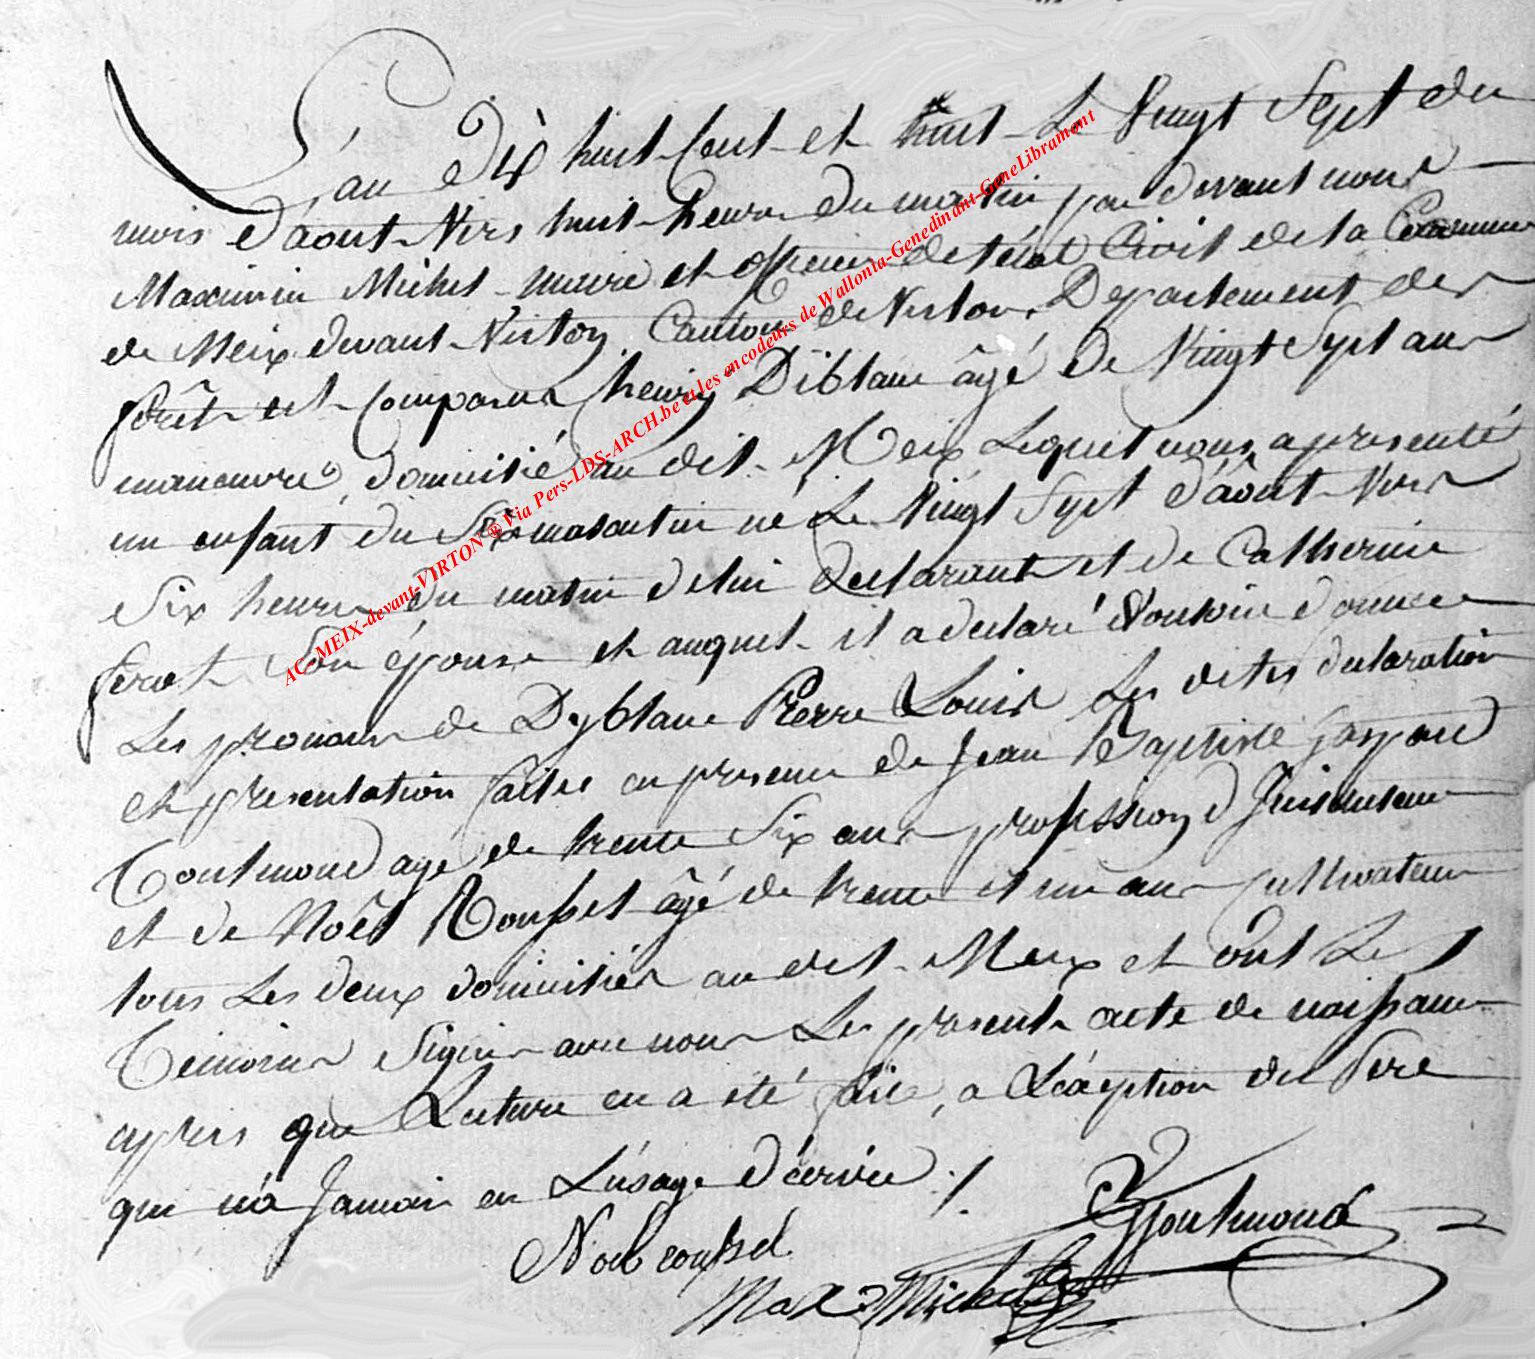 L'an Dix huit Cent et huit Le Vingt Sept du
mois d'aout Vers huit heures du matin par devant nous
Maximin Michel maire et officier de l'état Civil de la Commune
de Meix devant Virton Canton de Virton, Departement des
forêts est Comparus henry Diblanc âgé de Vingt Sept ans
manouvre, domicilié au dit Meix Lequel nous a presenté
un enfant du Sexe masculin né Le Vingt Sept d'aôut Vers
Six heures du matin de lui declarant et de Catherine
ferot Son épouse et auquel il a declaré Vouloir donner
Les prenoms de Dyblanc Pierre Louis Les dites declaration
et presentation faites en presence de Jean Baptiste Gaspard
Toutmond age de trente Six ans profession d'huisme
et de Noêl Roussel âgé de trente et un ans cultivateur
tous Les deux domiciliés au dit Meix et ont Les
Temoins Signés avec nous Le present acte de naissance
apres que Lecture en a été faite, a L'éxéption du Pere
qui n'a Jamais eu L'usage d'ecrire ./.
Noel roussel
Toutmond
Max. Michel
AC-MEIX-devant-VIRTON ® Via Pers-LDS-ARCH.be et les encodeurs de Wallonia-Genedinant-GeneLibramont